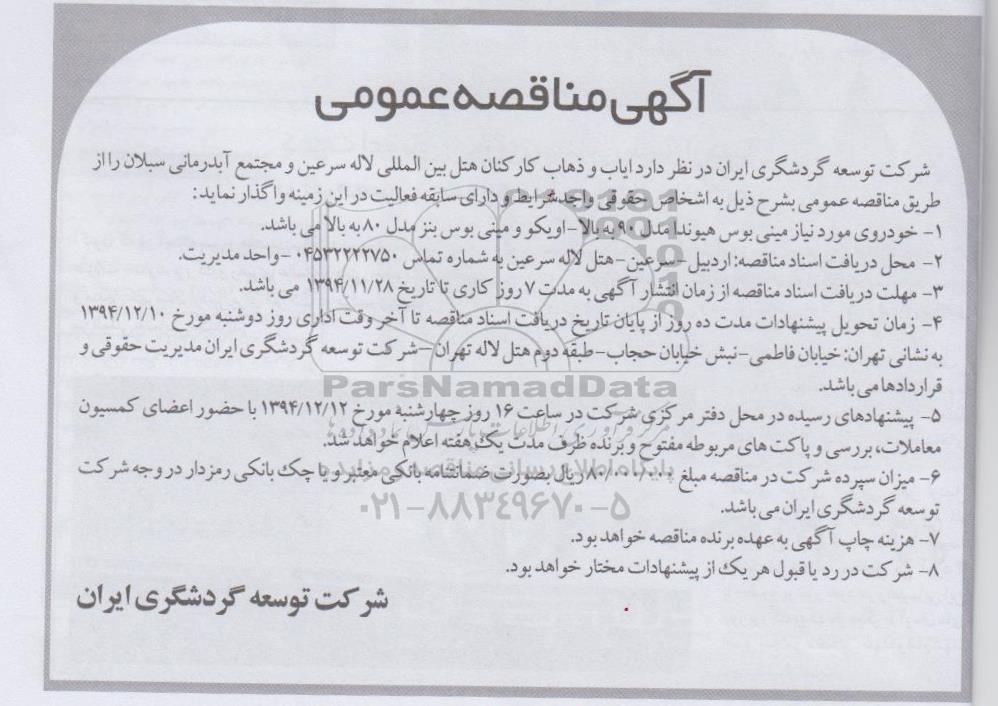 آگهی مناقصه عمومی
شرکت توسعه گردشگری ایران در نظر دارد ایاب و ذهاب کارکنان هتل بین المللی لاله سرعین و مجتمع آبدرمانی سبلان را از
طریق مناقصه عمومی بشرح ذیل به اشخاص حقوقی واجد شرایط و دارای سابقه فعالیت در این زمینه واگذار نماید:
۱- خودروی مورد نیاز مینی بوس هیوندا مدل ۹۰ به بالا -اویکو و مینی بوس بنز مدل ۸۰ به بالا می باشد.
۲- محل دریافت اسناد مناقصه: اردبیل-سرعین-هتل لاله سرعین به شماره تماس ۰۴۵۳۲۲۲۲۷۵۰ -واحد مدیریت.
۳- مهلت دریافت اسناد مناقصه از زمان انتشار آگهی به مدت ۷ روز کاری تا تاریخ ۱۳۹۴/۱۱/۲۸ می باشد.
۴- زمان تحویل پیشنهادات مدت ده روز از پایان تاریخ دریافت اسناد مناقصه تا آخر وقت اداری روز دوشنبه مورخ ۱۳۹۴/۱۲/۱۰
به نشانی تهران: خیابان فاطمی-نبش خیابان حجاب-طبقه دوم هتل لاله تهران -شرکت توسعه گردشگری ایران مدیریت حقوقی و
قراردادها می باشد.
ParsNamadData
۵- پیشنهادهای رسیده در محل دفتر مرکزی شرکت در ساعت ۱۶ روز چهارشنبه مورخ ۱۳۹۴/۱۲/۱۲ با حضور اعضای کمسیون
معاملات، بررسی و پاکت های مربوطه مفتوح و برنده ظرف مدت یک هفته اعلام خواهد شد.
۶- میزان سپرده شرکت در مناقصه مبلغ ۸۰/۰۰۰/۰۰۰ ریال بصورت ضمانتنامه بانکی معتبر و یا چک بانکی رمزدار در وجه شرکت
توسعه گردشگری ایران می باشد.
۰۲۱-۸۸۳۴۹۶۷۰-۵
۷- هزینه چاپ آگهی به عهده برنده مناقصه خواهد بود.
۸- شرکت در رد یا قبول هر یک از پیشنهادات مختار خواهد بود.
شرکت توسعه گردشگری ایران